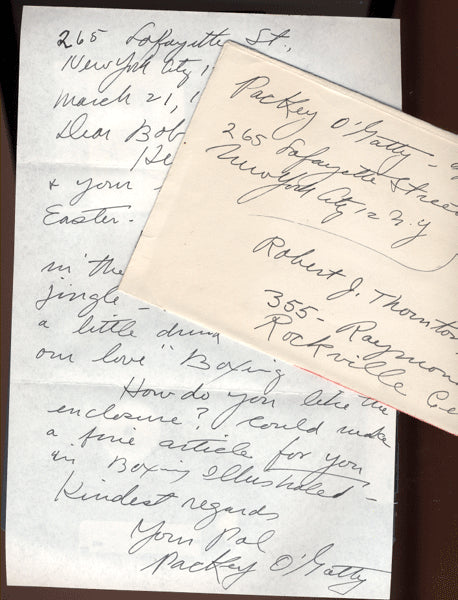 265 Lafayette St.,
New York City 1
March 21, 1
Dear Bob
He
& your
Easter.
in the
jingle -
a little drum
our love " Boxing
How do you like the
enclosure? Could make
a fine article for you
in Boxing Illustrated -
Kindest regards
Your Pal
Packey O'Gatty
Packey O'Gatty -
265 Lafayette Street
New York City 12 N.Y
Robert J. Thornton
355 - Raymond
Rockville Ce